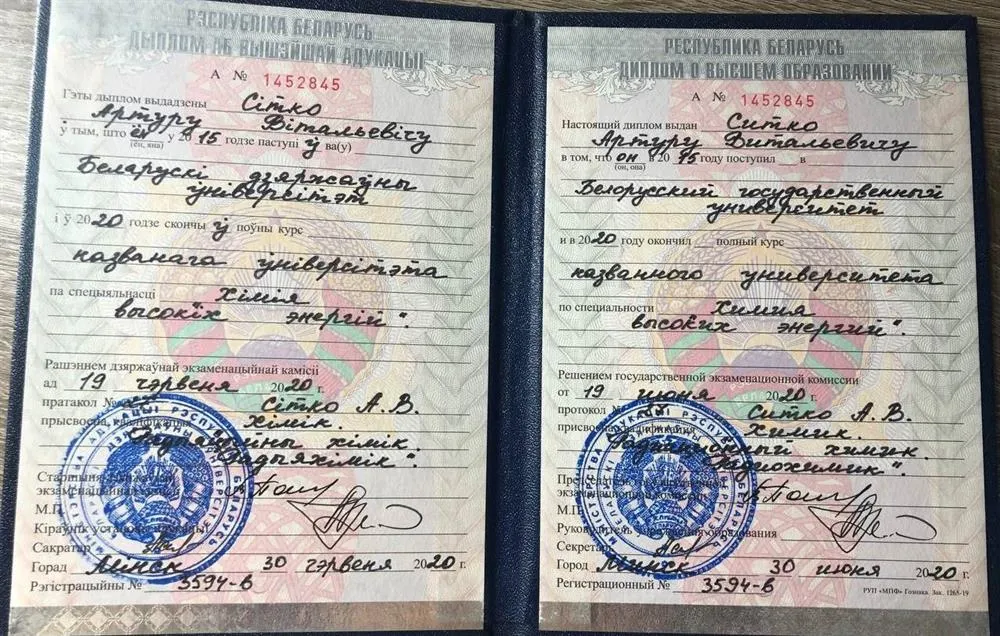 РЭСПУБЛІКА БЕЛАРУСЬ
ДЫПЛОМ АБ ВЫШЭЙШАЙ АДУКАЦЫІ
А № 1452845
Гэты дыплом выдадзены Сітко
Артуру Вітальевічу
ў тым, што ён у 2015 годзе паступі ў ва(у)
(ён, яна)
Беларускі дзяржаўны
ўніверсітэт
і ў 2020 годзе скончы ў поўны курс
названага ўніверсітэта
па спецыяльнасці "Хімія
высокіх энергій".
Рашэннем дзяржаўнай экзаменацыйнай камісіі
ад 19 чэрвеня 2020 г.
пратакол № Сітко А.В.
прысвоена кваліфікацыя "Хімік.
Радыяцыйны хімік.
Радыяхімік".
Старшыня дзяржаўнай
экзаменацыйнай камісіі
М.П.
Кіраўнік установы адукацыі
Сакратар
Горад Мінск 30 чэрвеня 2020 г.
Рэгістрацыйны № 3594-в
РЕСПУБЛИКА БЕЛАРУСЬ
ДИПЛОМ О ВЫСШЕМ ОБРАЗОВАНИИ
А № 1452845
Настоящий диплом выдан Ситко
Артуру Витальевичу
в том, что он в 2015 году поступил в
(он, она)
Белорусский государственный
университет
и в 2020 году окончил полный курс
названного университета
по специальности "Химия
высоких энергий".
Решением государственной экзаменационной комиссии
от 19 июня 2020 г.
протокол № Ситко А.В.
присвоена квалификация "Химик.
Радиационный химик.
Радиохимик".
Председатель государственной
экзаменационной комиссии
М.П.
Руководитель учреждения образования
Секретарь
Город Минск 30 июня 2020 г.
Регистрационный № 3594-в
РУП «МПФ» Гознака. Зак. 1265-19